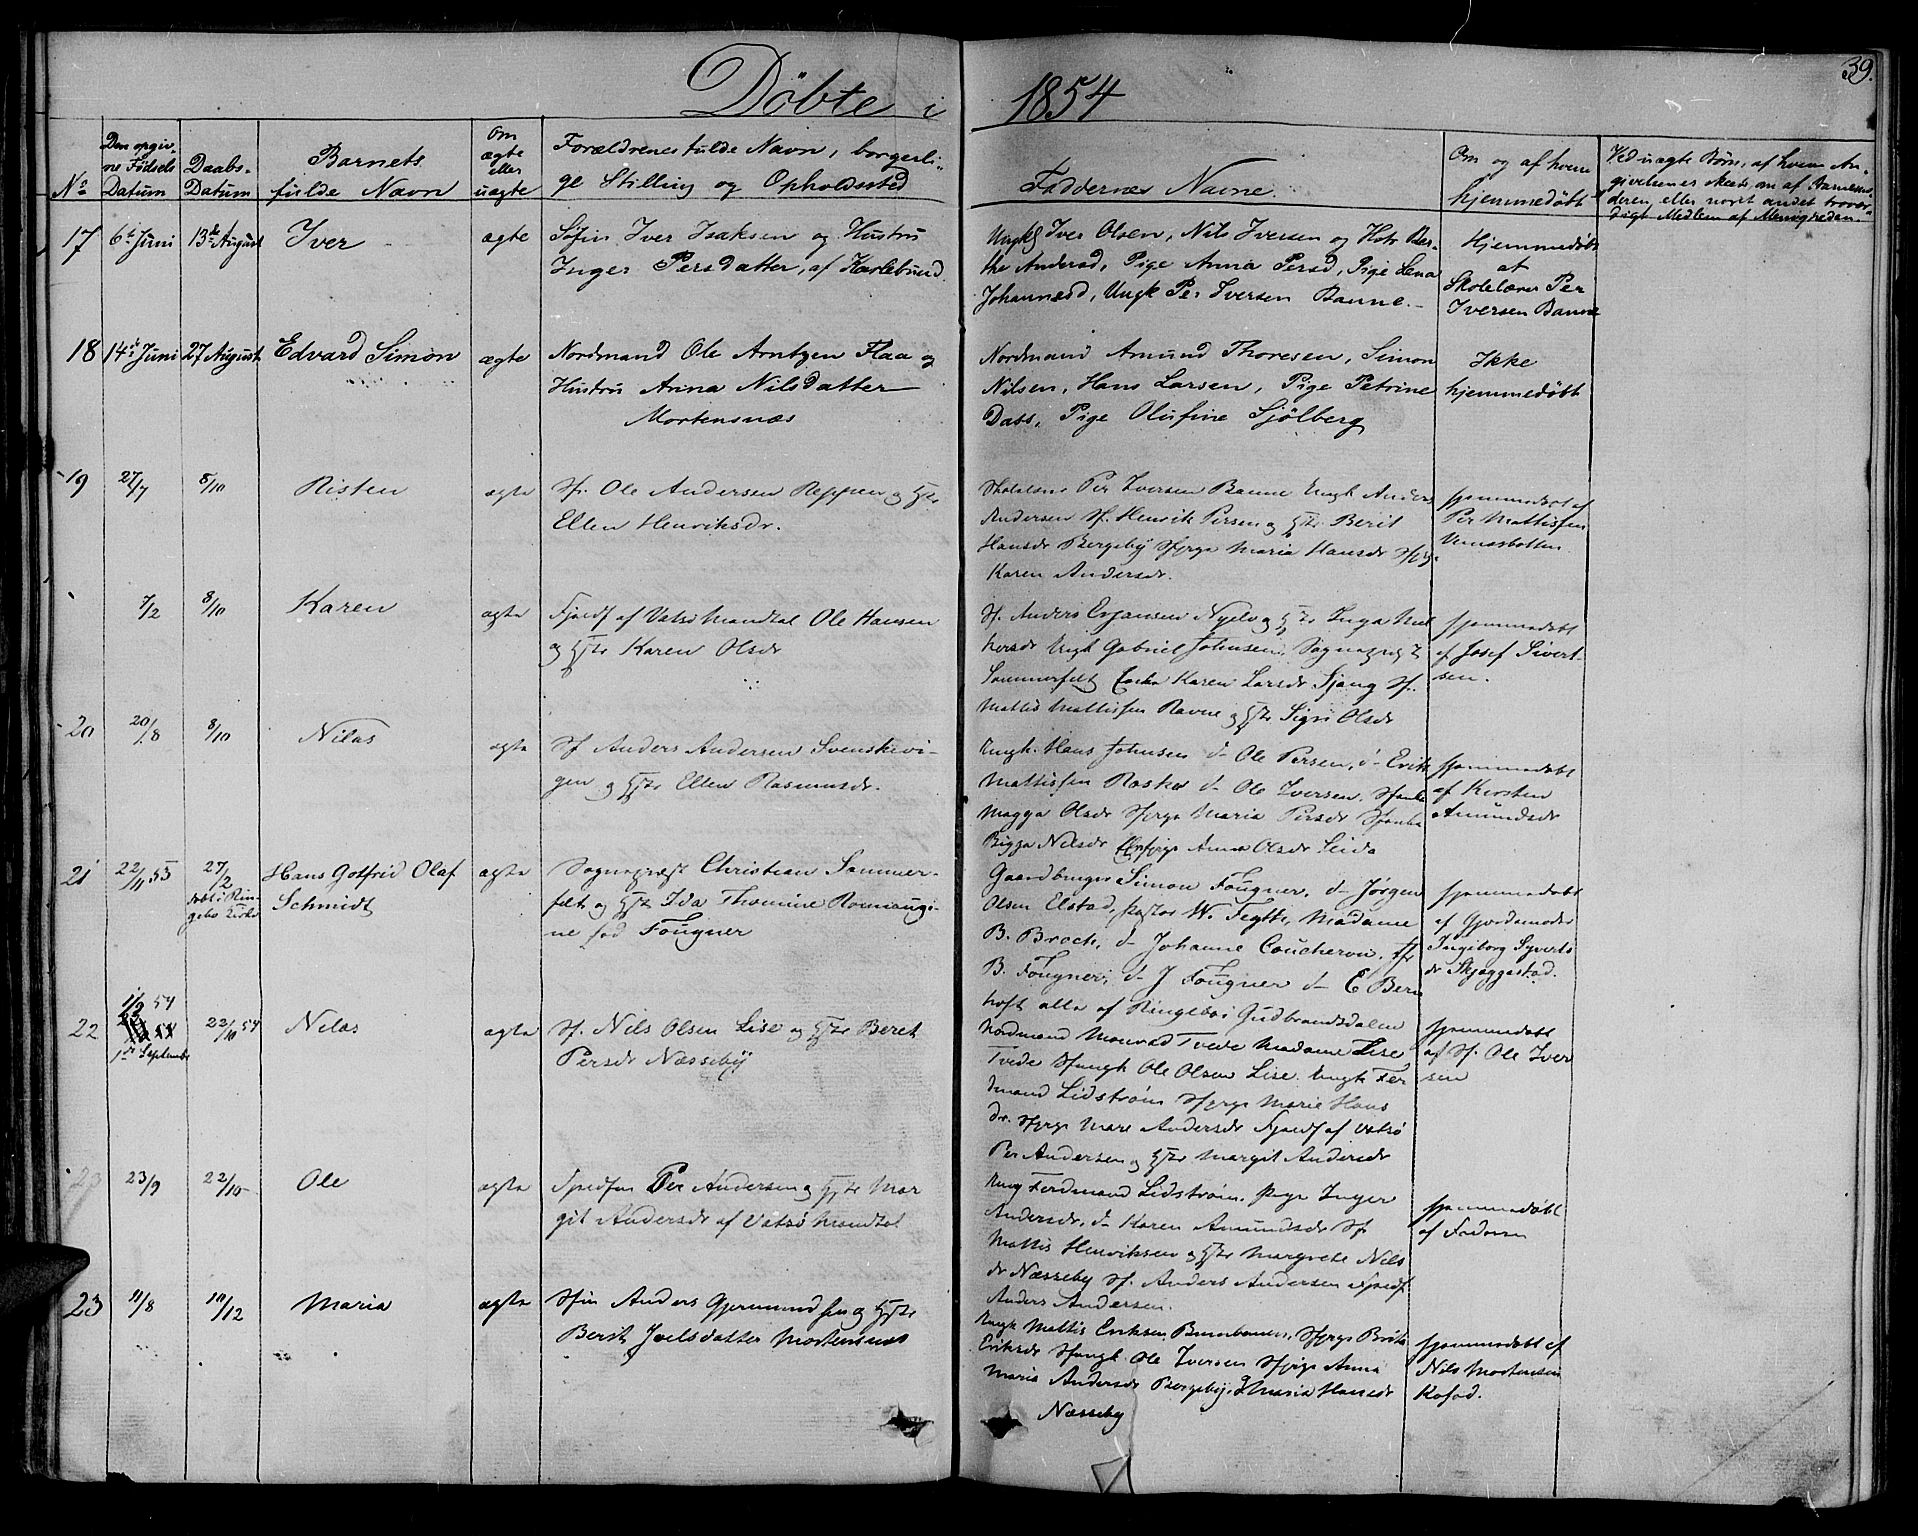 Döbte i 1854
39.
No
Den opgiv-
ne Fødsels
Datum
Daabs-
Datum
Barnets
fulde Navn
Om
ægte
eller
uægte
Forældrenes fulde Navn, borgerli-
ge Stilling og Opholdssted
Faddernes Navne
Om og af hvem
hjemmedøbt
Ved uægte Børn, af hvem An-
givelsen er skeet, om af Barnemo-
deren, eller noget andet trovær-
digt Medlem af Menigheden.
17 6te Juni 13de August Iver ægte
Søfin Iver Isaksen og Hustru
Inger Persdatter, af Karlebund
Ungk Iver Olsen, Nils Iversen og Hstr Ber-
the Andersd, Pige Anna Persd, Pige Lena
Johannesd, Ungk Per Iversen Banne.
Hjemmedøbt
af
Skolelærer Per
Iversen Banne
18 14de Juni 27 August Edvard Simon ægte
Nordmand Ole Arntzen Flaa og
Hustru Anna Nilsdatter
Mortensnæs
Nordmand Amund Thoresen, Simon
Nilsen, Hans Larsen, Pige Petrine
Dass, Pige Olufine Sjölberg
Ikke
hjemmedøbt
19 27/7 8/10 Risten ægte
Sf. Ole Andersen Reppen og Hstr
Ellen Henriksdr.
Skolelærer Per Iversen Banne Ungk Anders
Andersen Sf. Henrik Persen og Hstr Berit
Hansdr Bergeby Sfpige Maria Hansdr Sfpig.
Karen Andersdr.
hjemmedøbt af
Per Mathissen
7/2 8/10 Karen ægte
Fjeldf af Vatsø Mandtal Ole Hansen
og Hstr Karen Olsdr
Sf. Anders Nyelv og Hstr Inga
Ungk Gabriel Johnsen, Sognepræst
Sommerfelt Enke Karen Larsdr Sf.
Mattis Mattissen Ravne og Hstr Sigri Olsdr
hjemmedøbt
af Josef Sivert-
sen.
20 20/8 8/10 Nilas ægte
Sf Anders Andersen Svenskevi-
gen og Hstr Ellen Rasmusdr.
Ungk. Hans Johnsen d- Ole Persen, d- Erik
Mattissen d- Ole Iversen,
Magga Olsdr Sfpige Maria Persdr
Bigga Nilsdr Anna Olsdr
hjemmedøbt
af Kirsten
Amundsdr
21 22/11 53 27/2
døbt i Rin-
gebo Kirke
Hans Gotfrid Olaf
Schmidt
ægte
Sognepræst Christian Sommer-
felt og Hstr Ida Thomine
fød Fougner
Gaardbruger Simon Fougner, d- Jørgen
Olsen Elstad, pastor W. Madame
B. Broch, d- Johanne Coucheron, Fr
B. Fougner, d- J Fougner d- E Bern
hoft alle af Ringeboe Gudbrandsdalen
hjemmedøbt
af Gjordemoder
Ingeborg Syverts
dr Skjæggestad.
22 1/9 54
1ste September
22/10 54 Nilas ægte
Sf. Nils Olsen Lise og Hstr Beret
Persdr Næsseby
Nordmand Monrad Tvede Madame Lise
Tvede Sfungk Ole Olsen Lise. Ungk Fer
dinand Lidstrøm Sfpige Marie Hans
dr. Sfpige Mare Andersdr Fjeldf af Vatsø
Per Andersen og Hstr Margit Andersdr
hjemmedøbt
af Sf. Ole Iver
sen
23/9 22/10 Ole ægte
Fjeldfin Per Andersen og Hstr Mar
git Andersdr af Vatsø Mandtal
Ung Ferdinand Lidstrøm, pige Inger
Andersdr, d- Karen Amundsdr Sf
Mattis Henriksen og Hstr Margrete Nils
dr Næsseby Sf. Anders Andersen Fjeldf
Anders Andersen.
hjemmedøbt
af Faderen
23 11/8 10/12 Maria ægte
Sfin Anders Gjermundsen og Hstr
Berit Joelsdatter Mortensnæs
Ungk Mattis Eriksen Sfpige Brita
Eriksdr Sfungk Ole Iversen Sfpige Anna
Maria Andersdr Bergeby, Maria Hansdr
Næsseby
hjemmedøbt af
Nils Mortensen
Kofod.